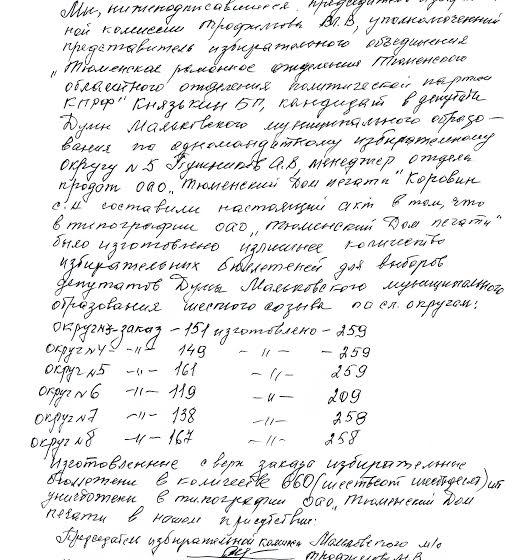 Мы, нижеподписавшиеся председатель
ной комиссии Трофимова М.В, уполномоченный
представитель избирательного объединения
„Тюменское районное отделения Тюменского
областного отделения политической партии
КПРФ" Князькин Б П, кандидат в депутаты
Думы Маяковского муниципального образо-
вания по одномандатному избирательному
округу №5 Пушников А.В, менеджер отдела
продаж ОАО „Тюменский Дом печати" Коровин
С.М составили настоящий акт в том, что
в типографии ОАО „Тюменский Дом печати"
было изготовлено излишнее количество
избирательных бюллетеней для выборов
депутатов Думы Маяковского муниципального
образования шестого созыва по сл. округам:
округ№3-заказ - 151 изготовлено - 259
округ №4 -"- 149 -"- - 259
округ №5 -"- 161 -"- 259
округ №6 -"- 119 -"- 209
округ №7 -"- 138 -"- 259
округ №8 -"- 167 -"- 258
Изготовленные сверх заказа избирательные
бюллетени в количестве 660 (шестьсот шестьдесят) шт
уничтожены в типографии ОАО „Тюменский Дом
печати в нашем присутствии:
Председатель избирательной комисси Маяковского м/о
Трофимова М.В.